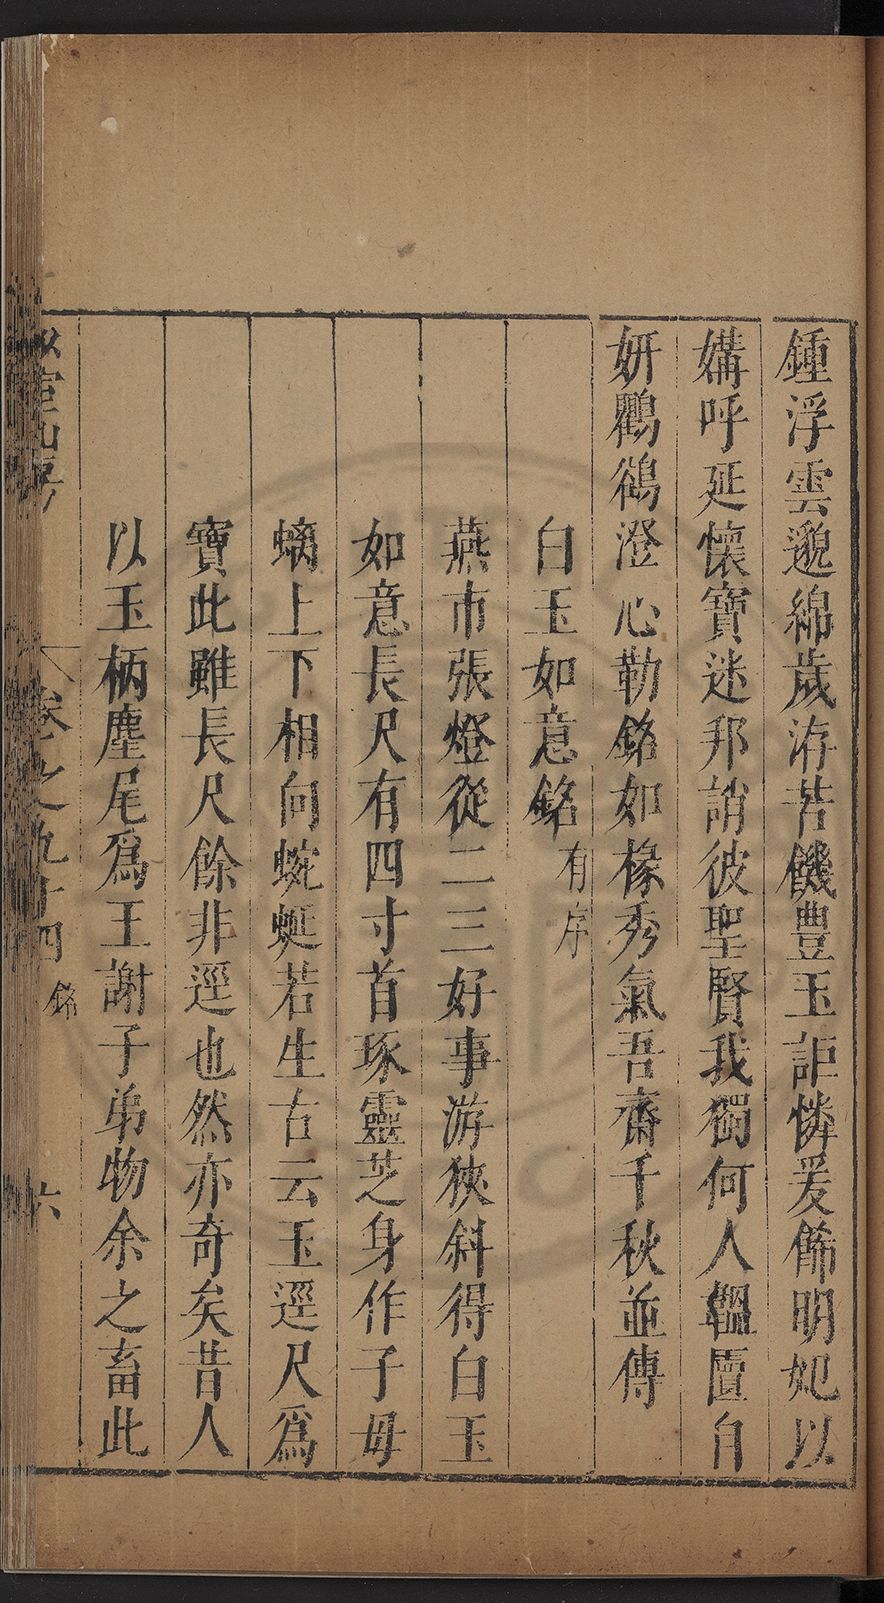 鍾浮雲邈綿歲洊苦饑豊玉詎憐爰俻明妃以
媾呼延懷寶迷邦誚彼聖賢我獨何人韞匵自
妍鸜鵒澄心勒銘如椽秀氣吾齋千秋並傳
白玉如意銘有序
燕市張燈從二三好事游狹斜得白玉
如意長尺有四寸首琢靈芝身作子毋
螭上下相向蜿蜒若生古云玉逕尺爲
寶此雖長尺餘非逕也然亦奇矣昔人
以玉柄塵尾爲王謝子弟物余之畜此
山房
卷之九十四 銘
六